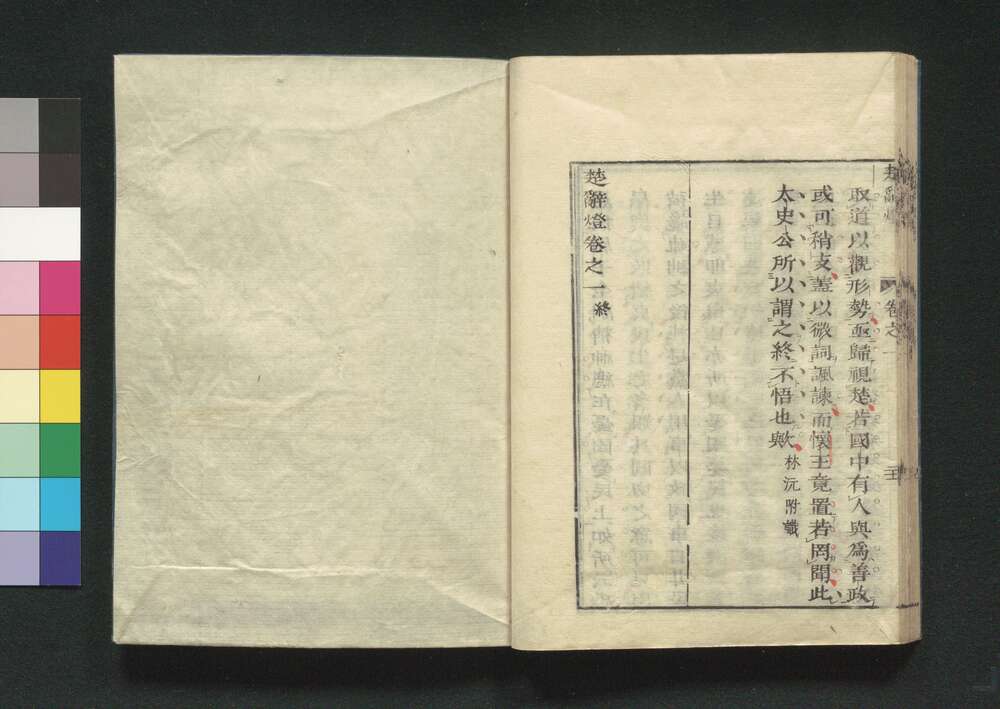 楚辭燈
卷之一
取道以觀形勢亟歸視楚若國中有人與爲善政
或可稍支蓋以微詞諷諫而懷王竟置若罔聞此
太史公所以謂之終不悟也歟 林沅附識
楚辭燈卷之一終